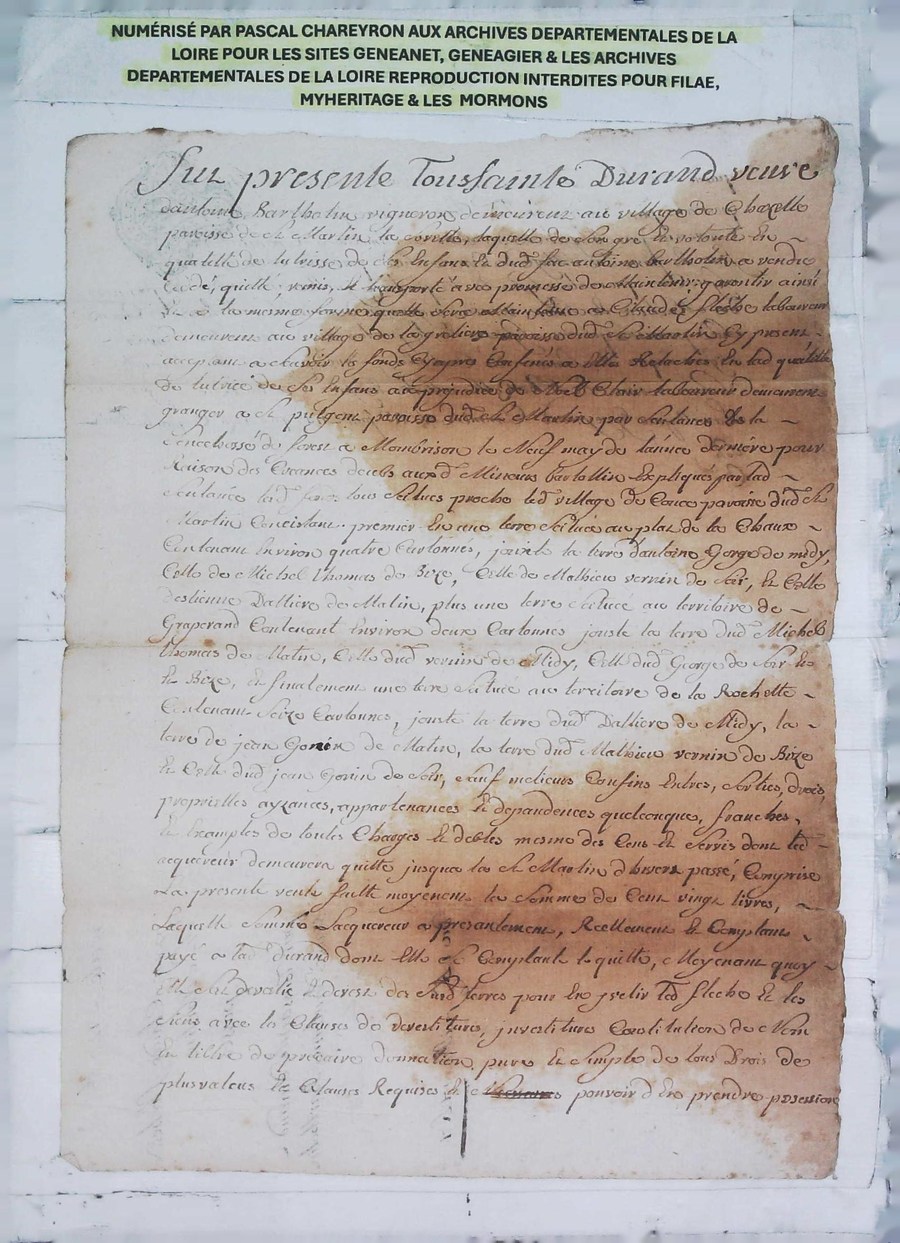 NUMÉRISÉ PAR PASCAL CHAREYRON AUX ARCHIVES DEPARTEMENTALES DE LA
LOIRE POUR LES SITES GENEANET, GENEAGIER & LES ARCHIVES
DEPARTEMENTALES DE LA LOIRE REPRODUCTION INTERDITES POUR FILAE,
MYHERITAGE & LES MORMONS
Fut presente Toussainte Durand veuve
dantoine Bartholin vigneron demeurent au village de Chazelle
paroisse de St Martin la laquelle de son gre et volonté en
qualité de tutrisse de ses Enfans et dud fut antoine bartholin a vendu
cedé, quitté, remis, et transporté avec promesse de Maintenir garentir ainsi
a Claude fléche laboureur
demeurant au village de paroisse dud St Martin Cy present
aceptant a scavoir les fonds Cyapres en lad qualitté
de tutrice de ses Enfans au prejudice de Clair laboureur demeurant
granger a St pulgent paroisse dud St Martin par Sentance de la
de forest a Monbrison le Neuf may de lannée derniére pour
Raison des aux d Mineurs bartollin Expliqués par lad
Sentance tous scitues proche led village de paroisse dud St
Martin Concistant premier En une terre scituée au plat de la Chaux
Contenant Environ quatre Cartonnés, jouxte la terre dantoine Gorge de midy,
Celle de Michel thomas de Bize, Celle de Mathieu vernin de soir, et Celle
destienne Dalliere de Matin, plus une terre scituée au territoire de
Graperand Contenant Environ deux Cartonnes jouste la terre dud Michel
thomas de Matin, Celle dud vernin de Midy, Celle dud George de soir et
de Bize, et finalement une terre scituée au territoire de la Rochette
Contenant Seize Cartonnes, jouste la terre dud Dalliere de Midy, la
terre de jean Gonin de Matin, la terre dud Mathieu vernin de Bize
et Celle dud jean Gonin de soir, sauf melieurs Confins Entres, Sorties, drois,
proprietes ayzances, appartenances et depandences quelconque, franches,
et Examptes de toutes Charges et debtes mesme des Cens et servis dont led
acquereur demeurera quitte jusques la St Martin dhivert passé, Comprise
La presente vente faitte moyenent la Somme de Cent vingt livres,
Laquelle Somme Lacquereur a presantement, Reellement et Comptant
payé a lad durand dont elle se Comptante le quitte, Moyenant quoy
elle sest devetie des susd terres pour En jnvetir led fleche et les
siens avec les Clauses de devestiture, jnvestiture Constitution de Nom
En tiltre de précaire donnation pure et simple de tous Drois de
plusvaleus et Clauses Requises et pouvoir dEn prendre possession